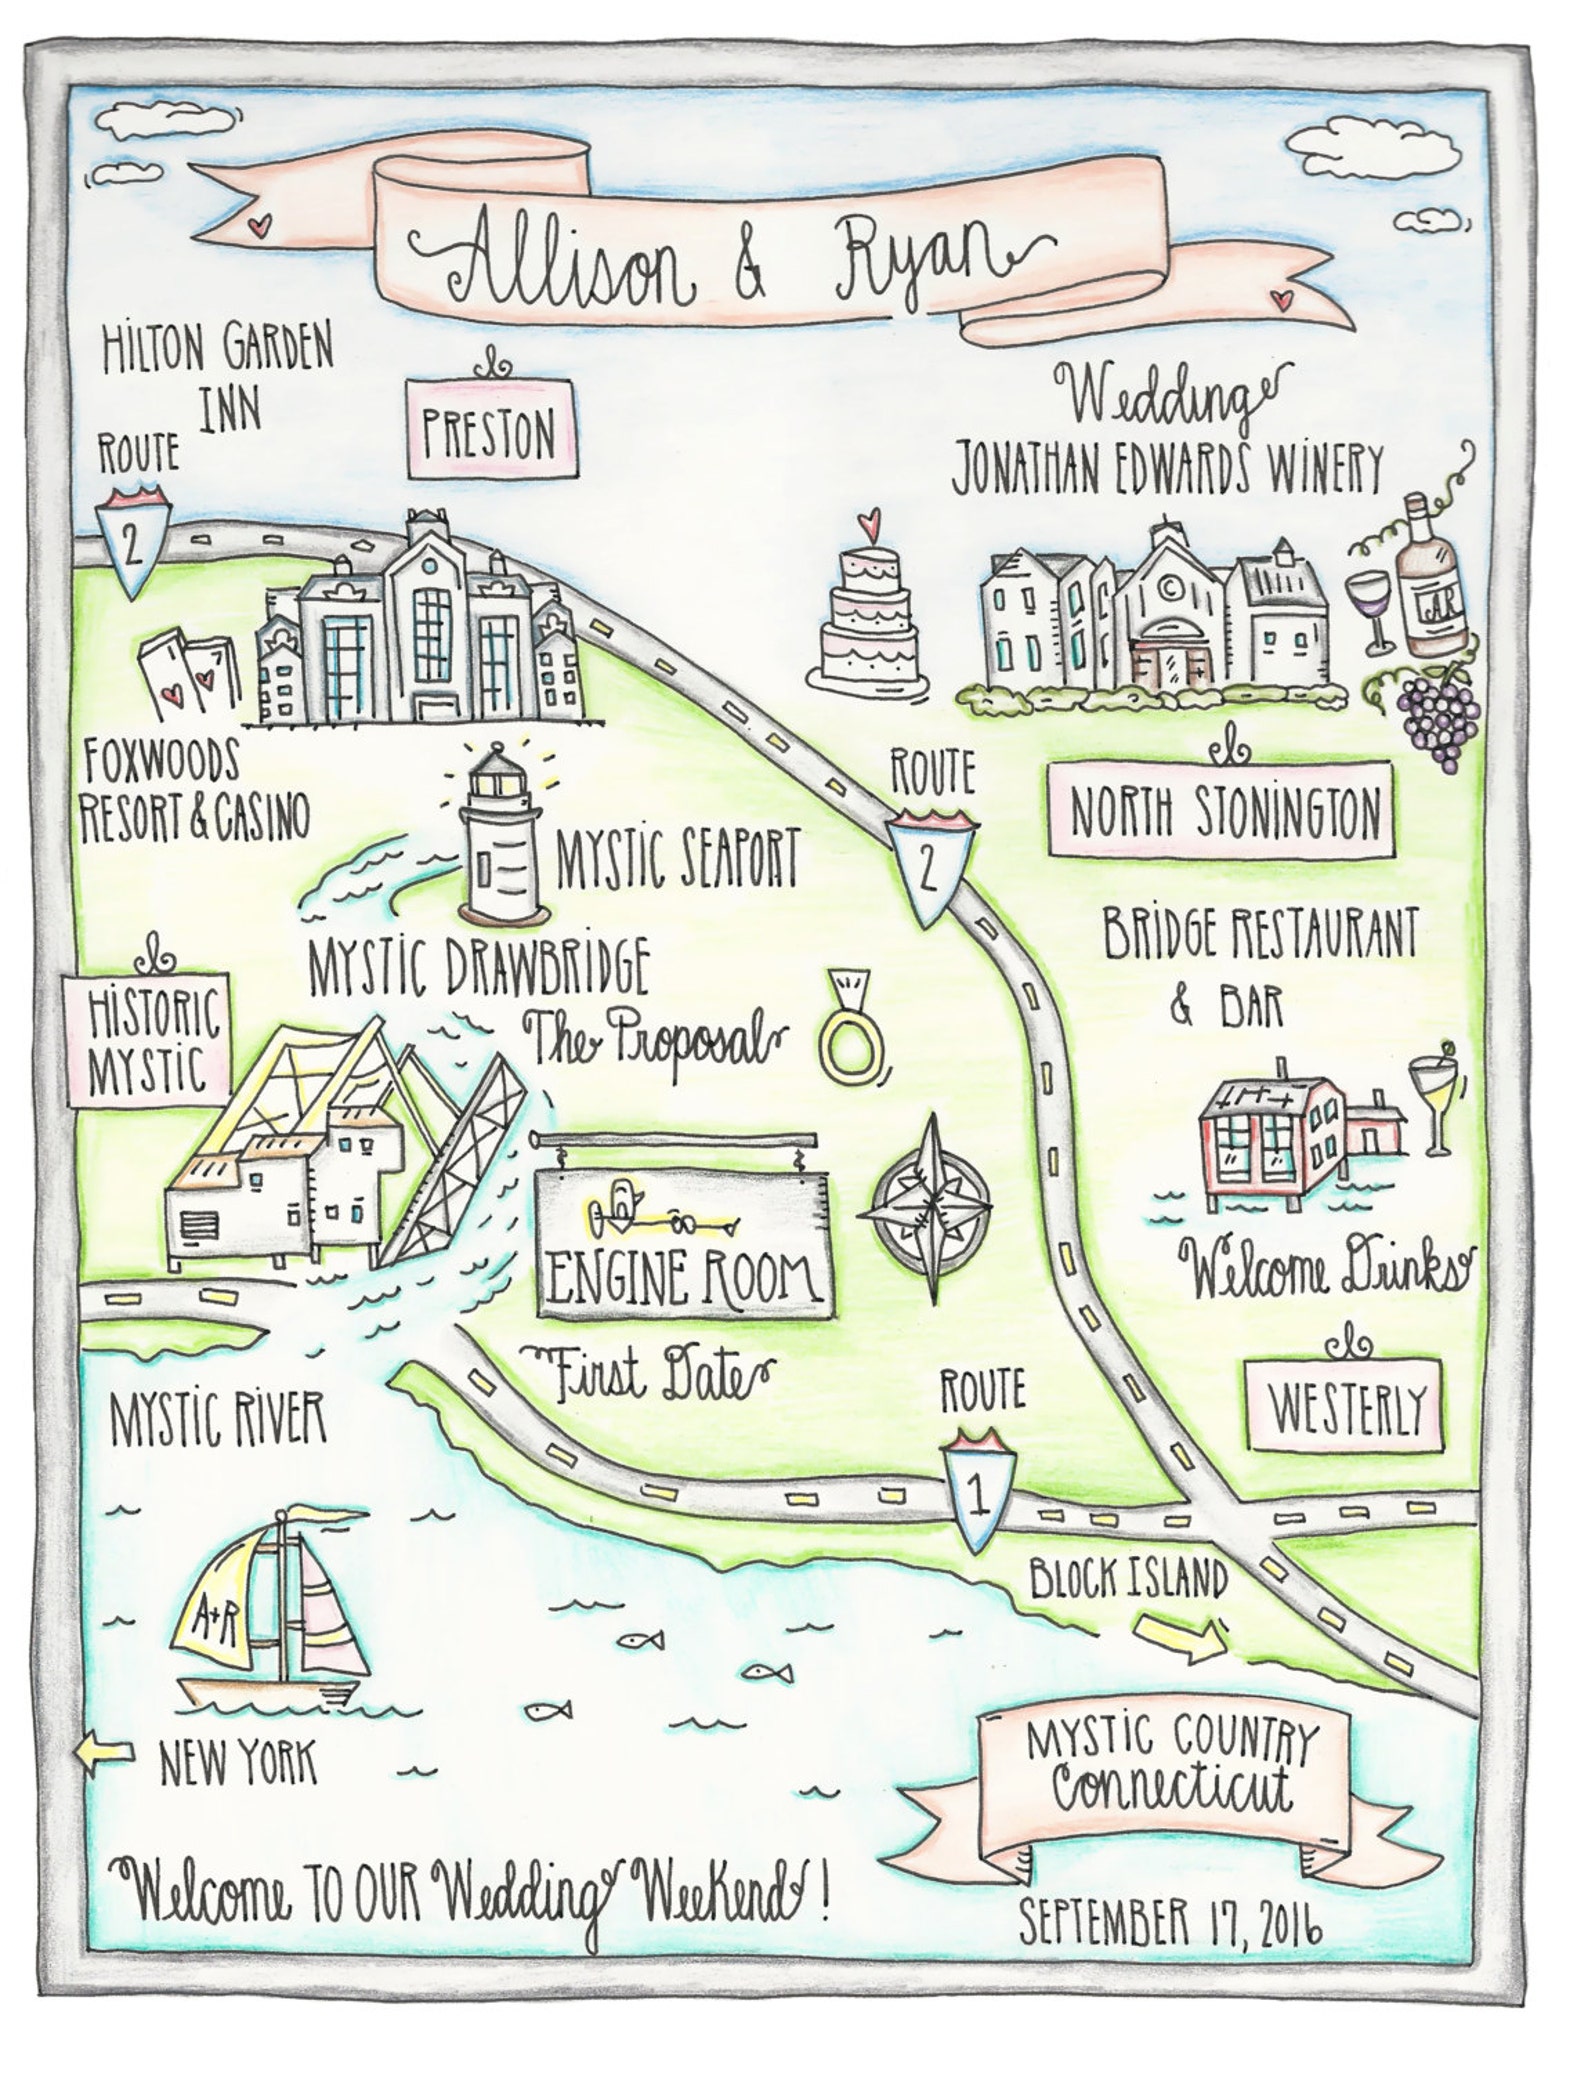 Allison & Ryan
HILTON GARDEN
INN
ROUTE
2
PRESTON
Wedding
JONATHAN EDWARDS WINERY
AR
FOXWOODS
RESORT & CASINO
ROUTE
2
NORTH STONINGTON
MYSTIC SEAPORT
MYSTIC DRAWBRIDGE
The Proposal
HISTORIC
MYSTIC
BRIDGE RESTAURANT
& BAR
Welcome Drinks
ENGINE ROOM
First Date
WESTERLY
ROUTE
1
MYSTIC RIVER
BLOCK ISLAND
A+R
NEW YORK
MYSTIC COUNTRY
Connecticut
Welcome TO OUR Wedding Weekend!
SEPTEMBER 17, 2016